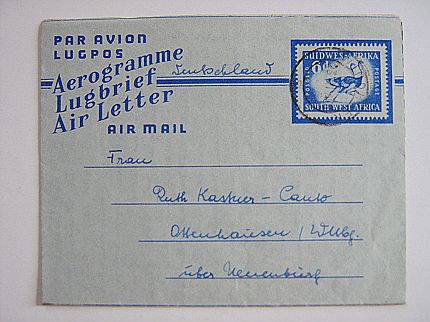 PAR AVION
LUGPOS
Aerogramme
Lugbrief
Air Letter
AIR MAIL
Deutschland
SUIDWES-AFRIKA
6d
POSSEËL POSTAGE
SOUTH WEST AFRICA
Frau
Ruth Kastner-
Ottenhausen / Wttbg.
über Neuenbürg